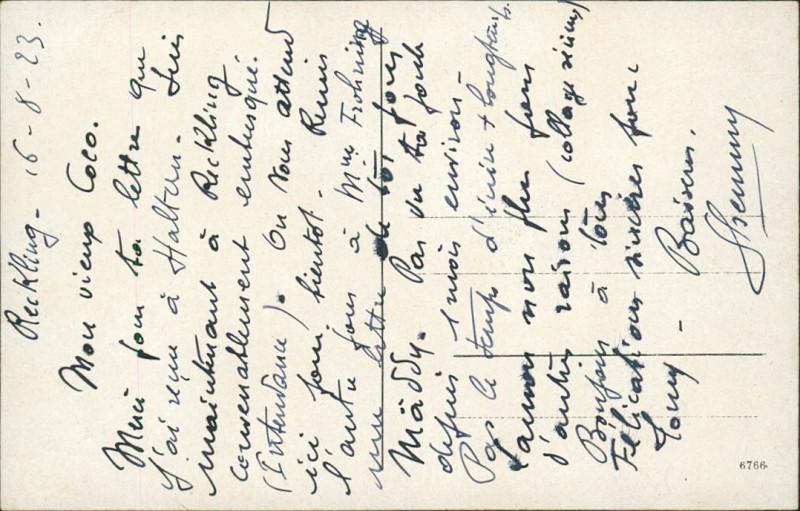 Reckling - 16-8-23.
Mon vieux Coco.
Merci pour ta lettre que
j'ai reçu à Haltern. Suis
maintenant à Reckling
convenablement embusqué.
(Intendance). On vous attend
ici pour bientôt. Remis
l'autre jour à Mme Frohning
une lettre de toi pour
Mäddy. Pas vu ta poule
depuis 1 mois environ
Pas le temps d'écrire + longtemps.
J'aurai non plus pour
d'autres raisons (collage
Bonjour à tous
Félicitations sincères pour
Tony -
Baisers.
6766